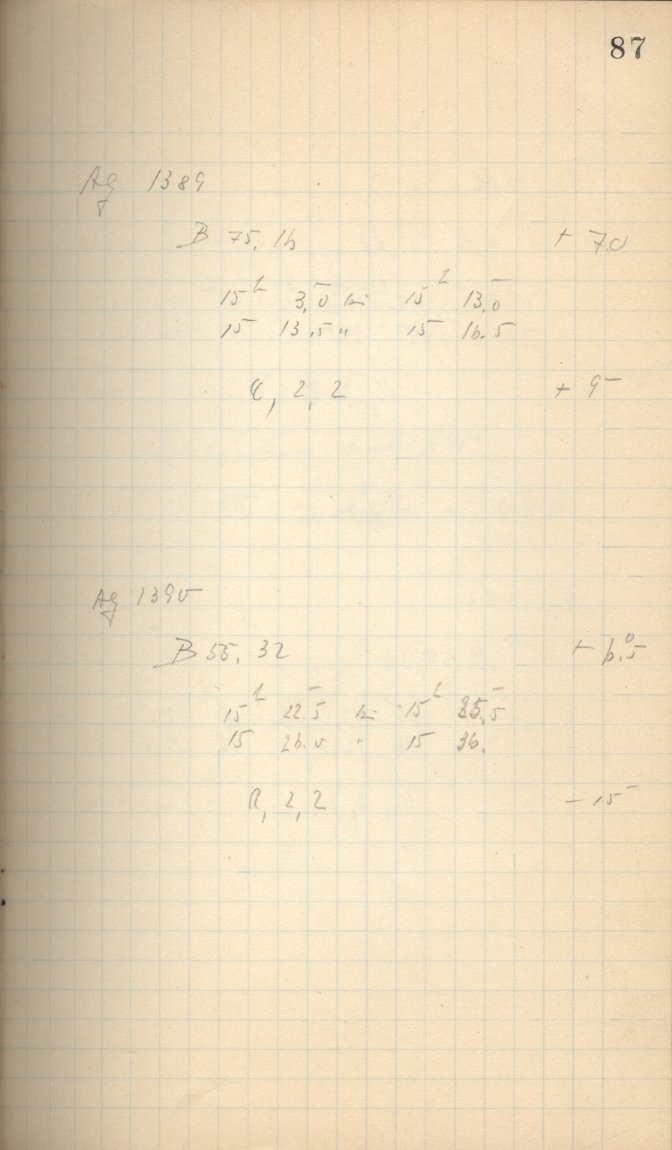 87
Ag 1389
B 75, 16 + 70
15h 3,0 bis 15h 13,0
15 13,5 " 15 16.5
2, 2 + 9
Ag 1390
B 55, 32 + 6.°5
15h 22.5 bis 15h 25,5
15 26.0 " 15 36.
R, 2, 2 - 15